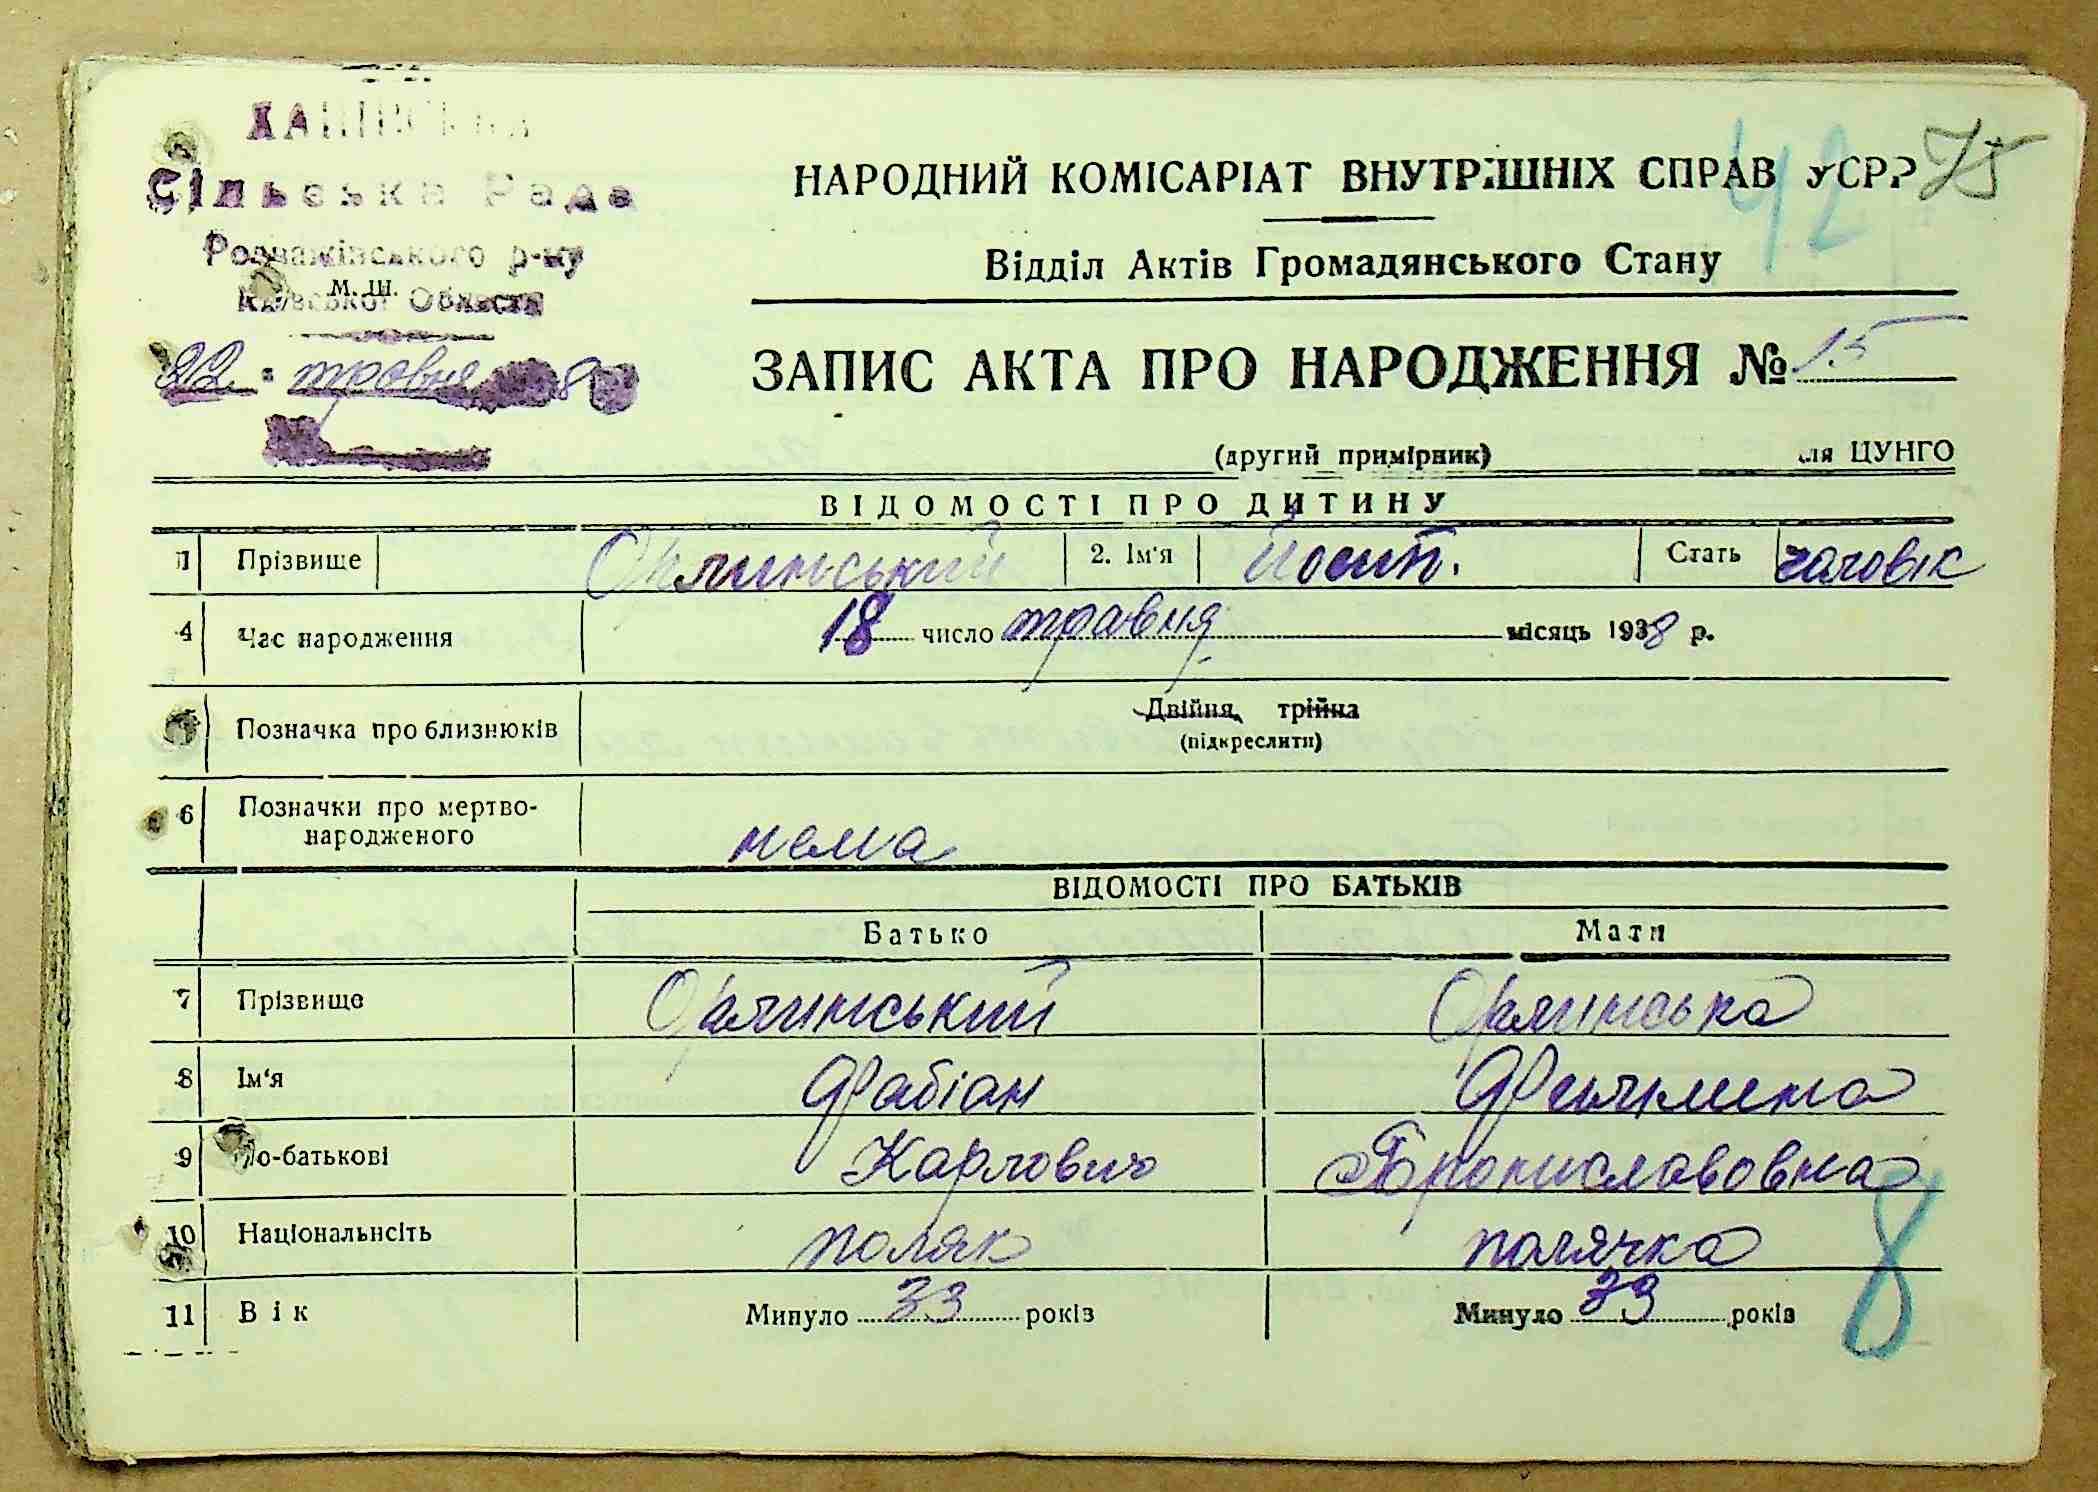 Сільська Рада
Розважівського р-ну
М. Ш.
Київської Области
22 травня 8
42 75
НАРОДНИЙ КОМІСАРІАТ ВНУТРІШНІХ СПРАВ УСРР
Відділ Актів Громадянського Стану
ЗАПИС АКТА ПРО НАРОДЖЕННЯ № 15
(другий примірник) для ЦУНГО
ВІДОМОСТІ ПРО ДИТИНУ
1 Прізвище Орлинський 2. Ім'я Йосип. Стать чоловік
4 Час народження 18 число травня місяць 1938 р.
Позначка про близнюків Двійня, трійна
(підкреслити)
6 Позначки про мертво-
народженого нема
ВІДОМОСТІ ПРО БАТЬКІВ
Батько Мати
7 Прізвище Орлинський Орлинська
8 Ім'я Фабіан
9 По-батькові Карлович Брониславовна
10 Національнсіть поляк полячка
11 Вік Минуло 33 років Минуло років
8